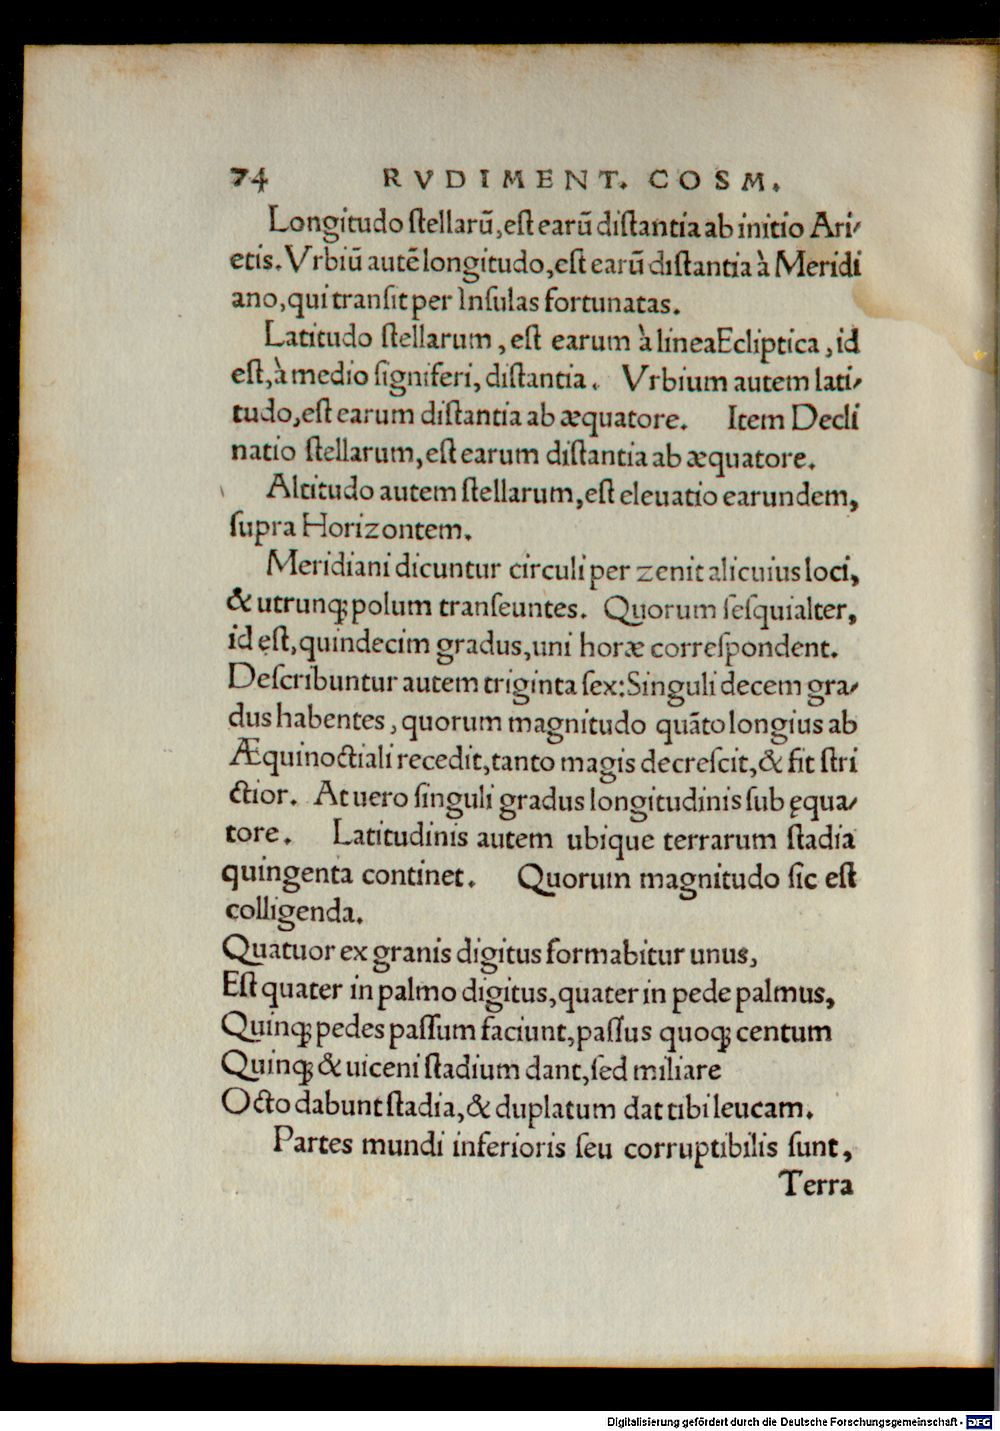 74 RVDIMENT. COSM.
Longitudo ſtellarũ, eſt earũ diſtantia ab initio Ari⸗
etis. Vrbiũ autẽ longitudo, eſt earũ diſtantia à Meridi
ano, qui tranſit per Inſulas fortunatas.
Latitudo ſtellarum, eſt earum à linea Ecliptica, id
eſt, à medio ſigniferi, diſtantia. Vrbium autem lati⸗
tudo, eſt earum diſtantia ab æquatore. Item Decli
natio ſtellarum, eſt earum diſtantia ab æquatore.
Altitudo autem ſtellarum, eſt eleuatio earundem,
ſupra Horizontem.
Meridiani dicuntur circuli per zenit alicuius loci,
& utrunq; polum tranſeuntes. Quorum ſeſquialter,
id eſt, quindecim gradus, uni horæ correſpondent.
Deſcribuntur autem triginta ſex: Singuli decem gra⸗
dus habentes, quorum magnitudo quãto longius ab
Æquinoctiali recedit, tanto magis decreſcit, & fit ſtri
ctior. At uero ſinguli gradus longitudinis ſub ęqua⸗
tore. Latitudinis autem ubique terrarum ſtadia
quingenta continet. Quorum magnitudo ſic eſt
colligenda.
Quatuor ex granis digitus formabitur unus,
Eſt quater in palmo digitus, quater in pede palmus,
Quinq; pedes paſſum faciunt, paſſus quoq; centum
Quinq; & uiceni ſtadium dant, ſed miliare
Octo dabunt ſtadia, & duplatum dat tibi leucam.
Partes mundi inferioris ſeu corruptibilis ſunt,
Terra
Digitalisierung gefördert durch die Deutsche Forschungsgemeinschaft - DFG